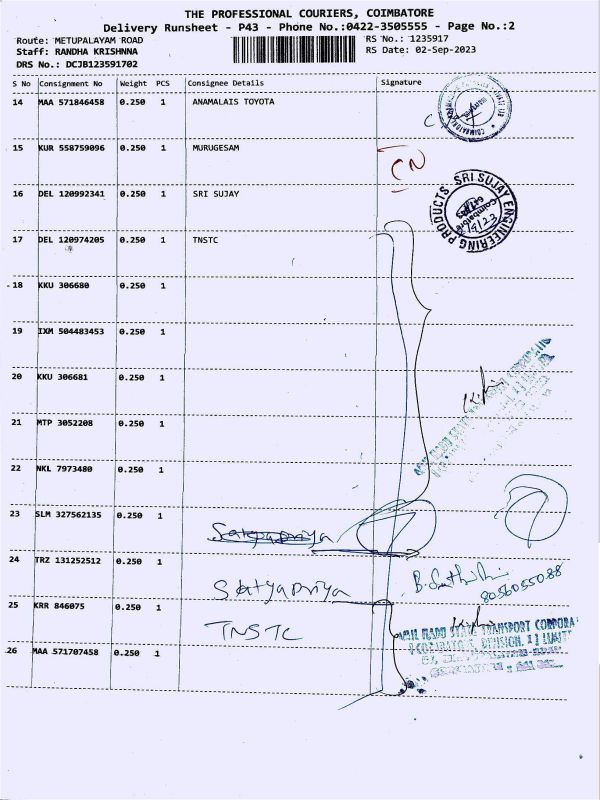 THE PROFESSIONAL COURIERS, COIMBATORE
Delivery Runsheet - P43 - Phone No.:0422-3505555 - Page No.:2
Route: METUPALAYAM ROAD
RS No.: 1235917
Staff: RANDHA KRISHNNA
RS Date: 02-Sep-2023
DRS No.: DCJB123591702
S No Consignment No Weight PCS Consignee Details Signature
14 MAA 571846458 0.250 1 ANAMALAIS TOYOTA
15 KUR 558759096 0.250 1 MURUGESAM
CN
16 DEL 120992341 0.250 1 SRI SUJAY
SRI SUJAY ENGINEERING PRODUCTS
Coimbatore
17 DEL 120974205 0.250 1 TNSTC
18 KKU 306680 0.250 1
19 IXM 504483453 0.250 1
20 KKU 306681 0.250 1
21 MTP 3052208 0.250 1
22 NKL 7973480 0.250 1
23 SLM 327562135 0.250 1
Satyapriya
24 TRZ 131252512 0.250 1
Satyapriya
8056055088
25 KRR 846075 0.250 1
TNSTC
STATE TRANSPORT CORPORA
26 MAA 571707458 0.250 1